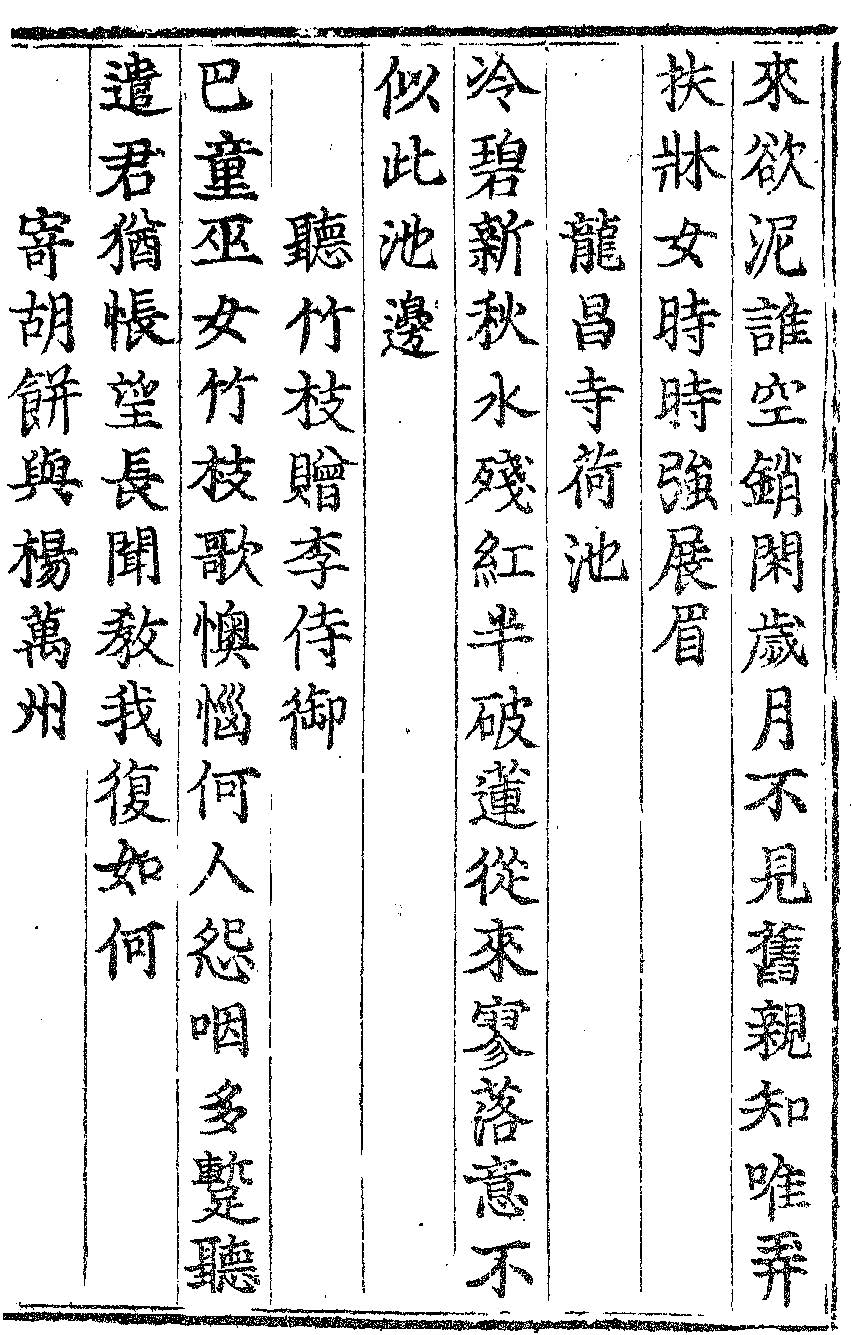 來欲泥誰空銷閑歲月不見舊親知唯弄
扶牀女時時強展眉
龍昌寺荷池
冷碧新秋水殘紅半破蓮從來寥落意不
似此池邊
聽竹枝贈李侍御
巴童巫女竹枝歌懊惱何人怨咽多蹔聽
遣君猶悵望長聞敎我復如何
寄胡餅與楊萬州